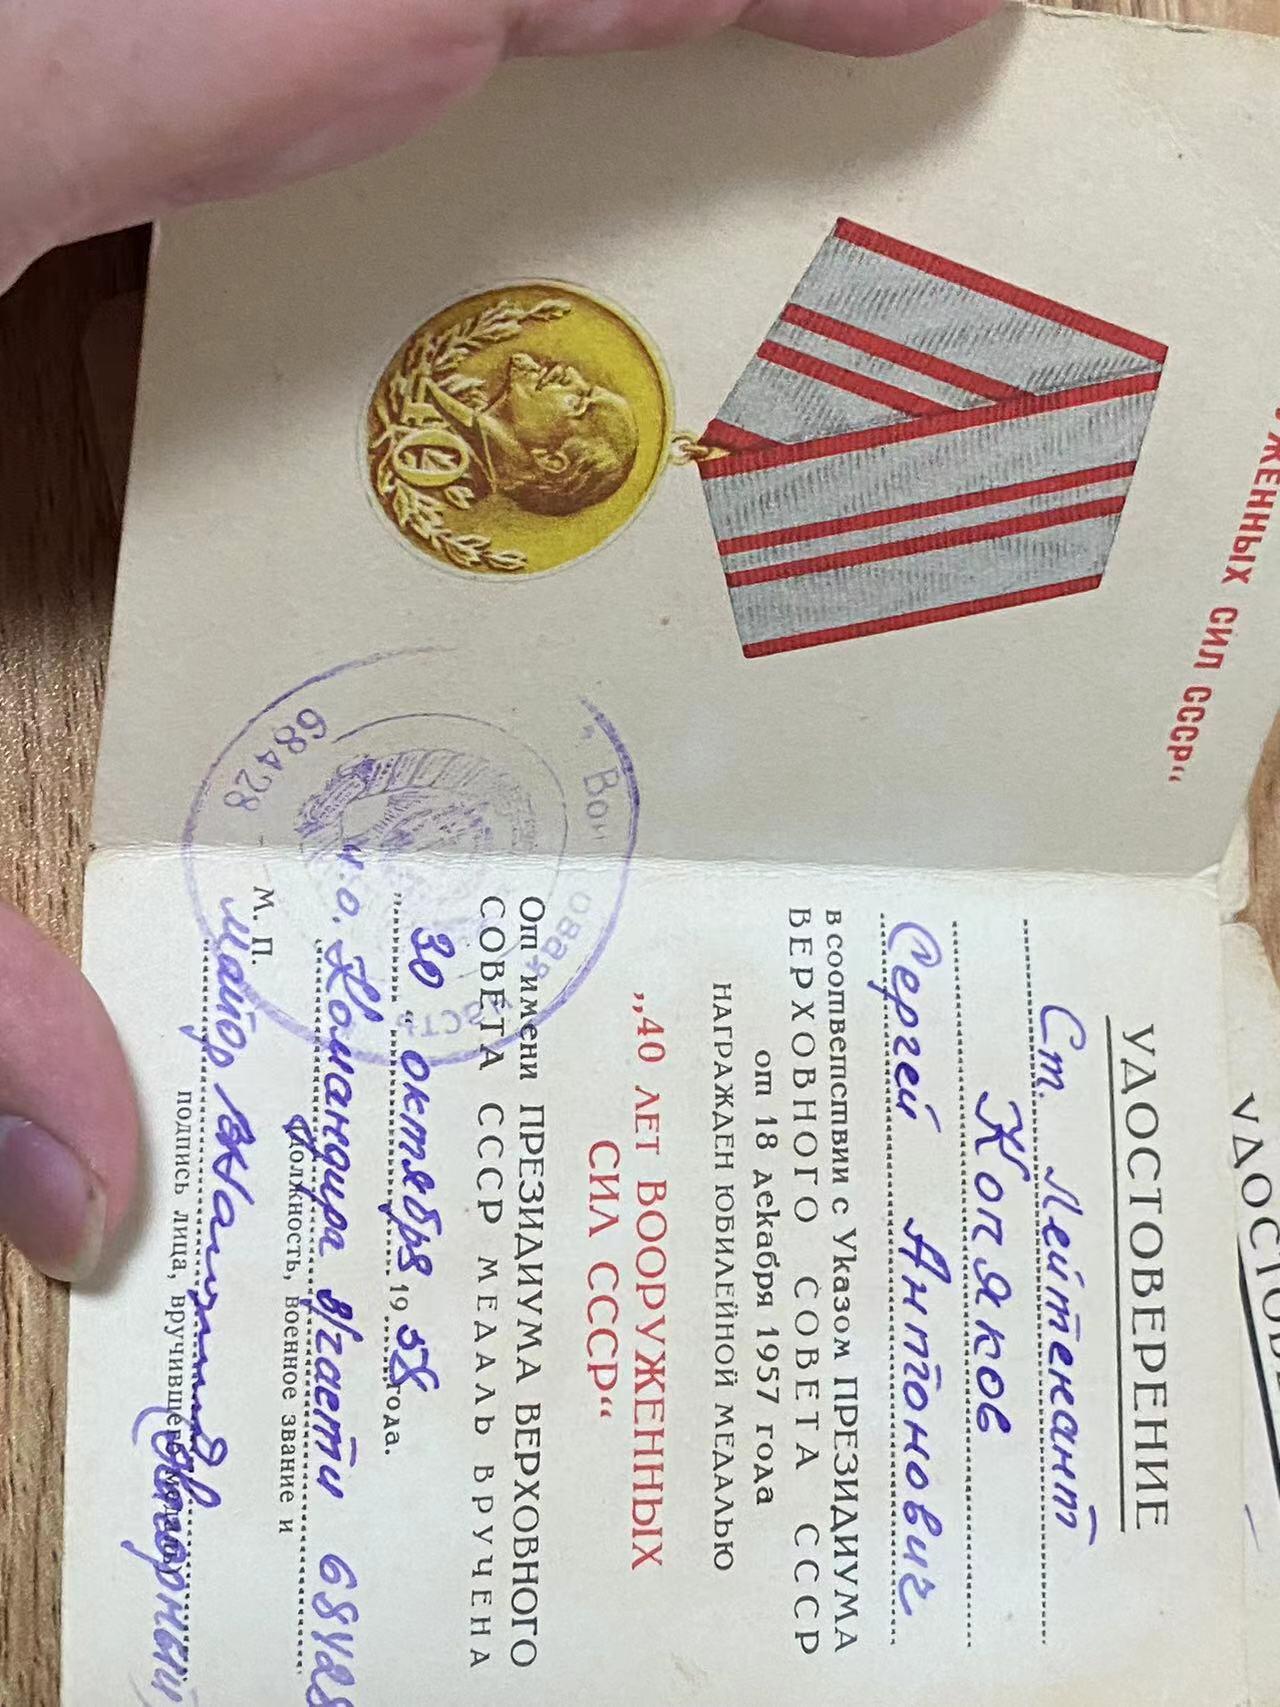 ЖЕННЫХ СИЛ СССР“
40
68428
УДОСТОВЕРЕНИЕ
Ст. Лейтенант
Копяков
Сергей Антонович
в соответствии с Указом ПРЕЗИДИУМА
ВЕРХОВНОГО СОВЕТА СССР
от 18 декабря 1957 года
НАГРАЖДЕН ЮБИЛЕЙНОЙ МЕДАЛЬЮ
„40 ЛЕТ ВООРУЖЕННЫХ
СИЛ СССР“
От имени ПРЕЗИДИУМА ВЕРХОВНОГО
СОВЕТА СССР МЕДАЛЬ ВРУЧЕНА
„30“ октября 1958 года.
и.о. Командира в/части 68428
М. П. должность, военное звание и
майор Нагорный
подпись лица, вручившего медаль
УДОСТОВЕ